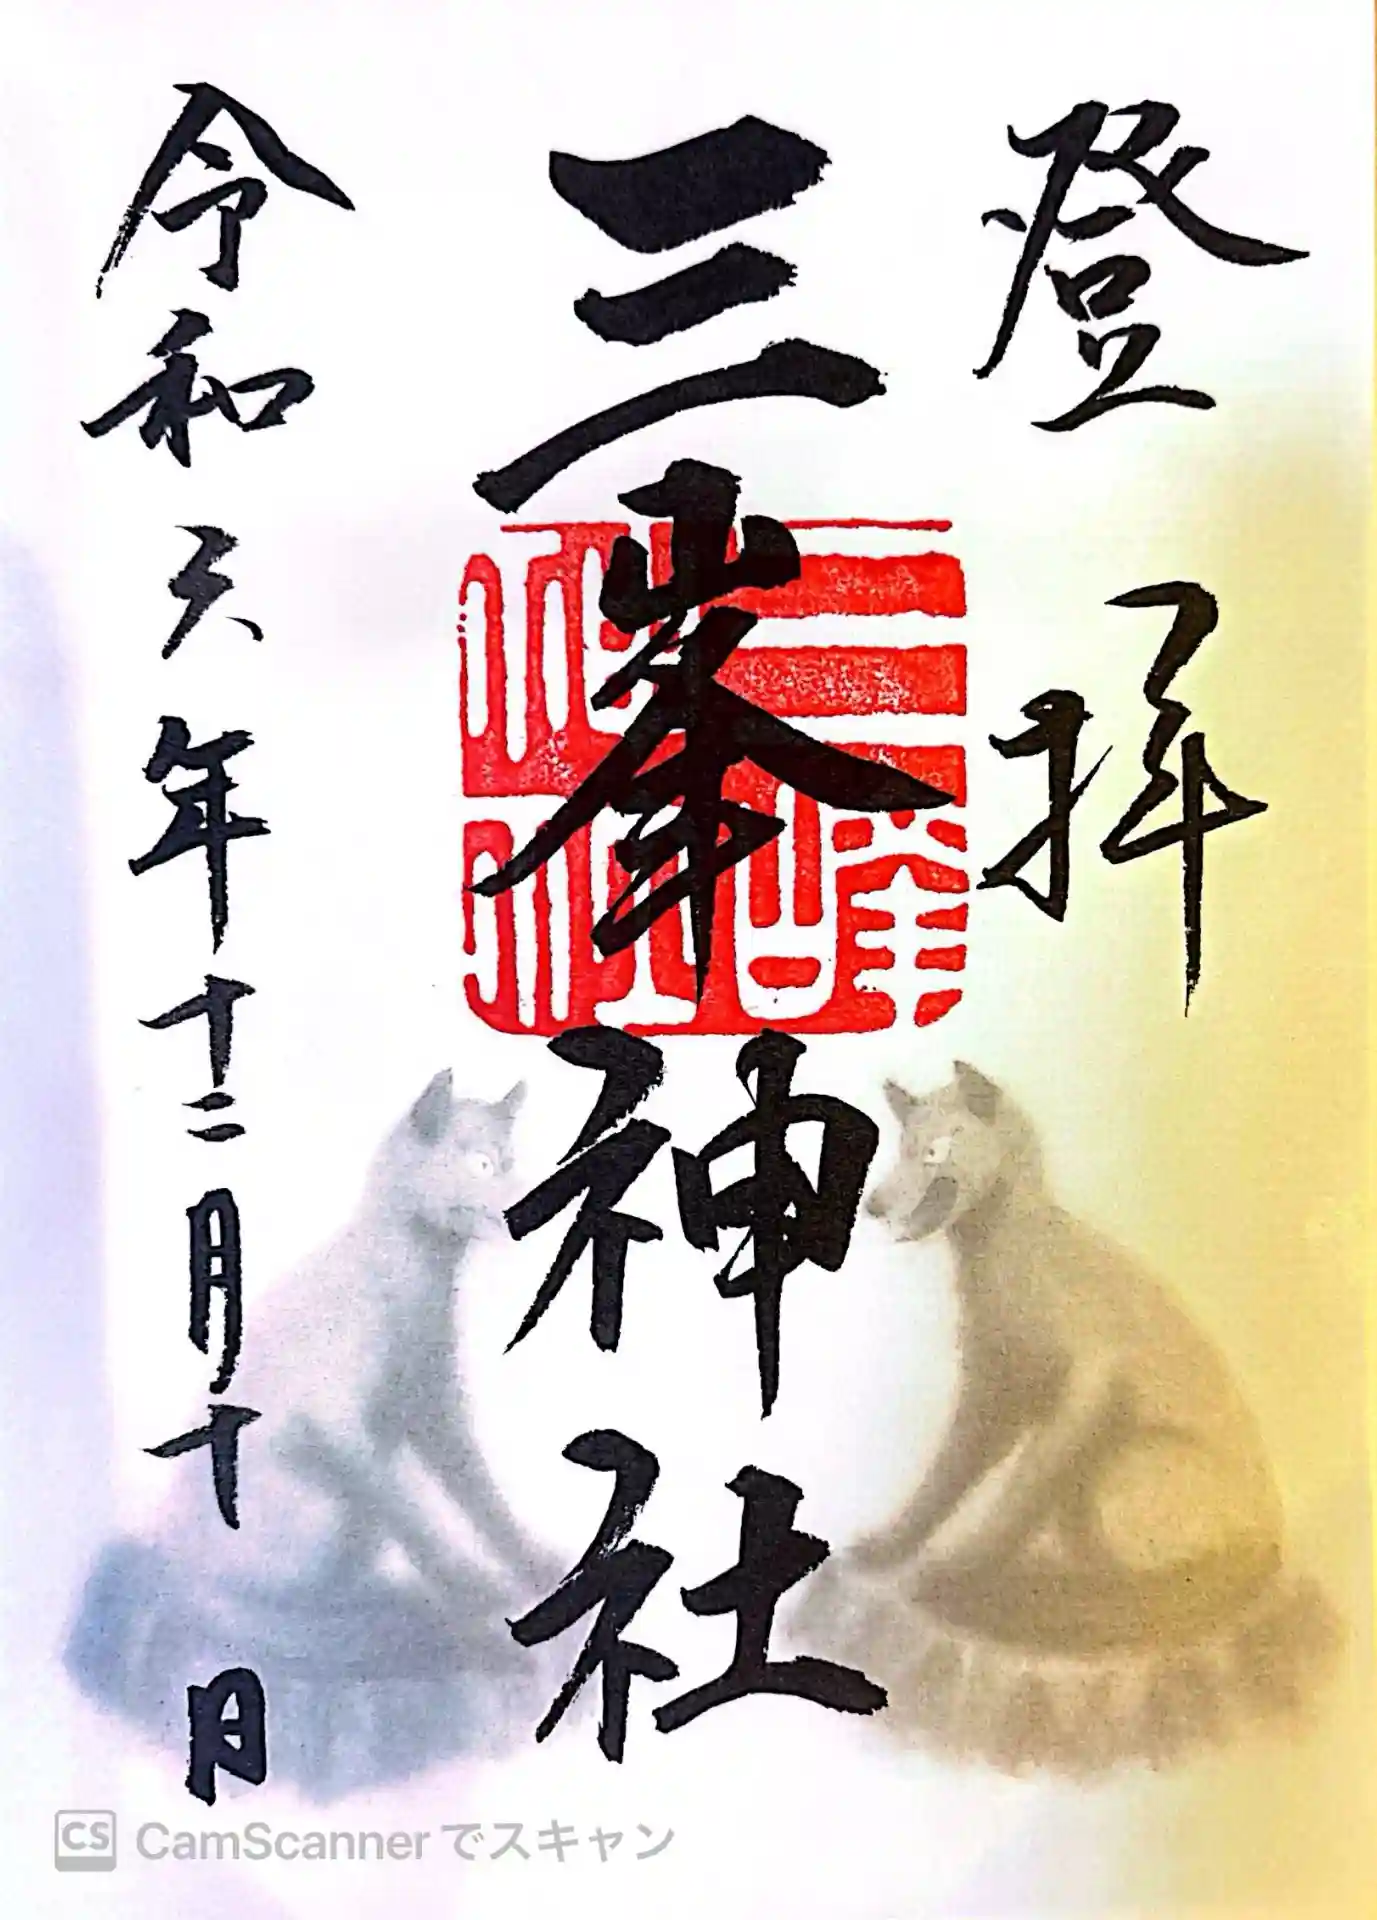 登拝
三峯神社
三峰神社
令和六年十二月十日
CS CamScannerでスキャン